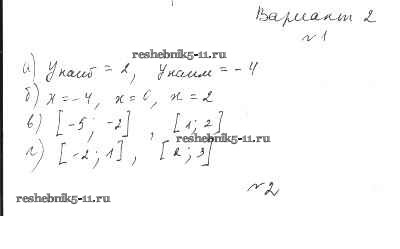 Вариант 2
№1
а) Yнаиб = 2, Yнаим = -4
reshebnik5-11.ru
б) x = -4, x = 0, x = 2
в) [-5; -2], [1; 2]
reshebnik5-11.ru
г) [-2; 1], [2; 3]
reshebnik5-11.ru
№2